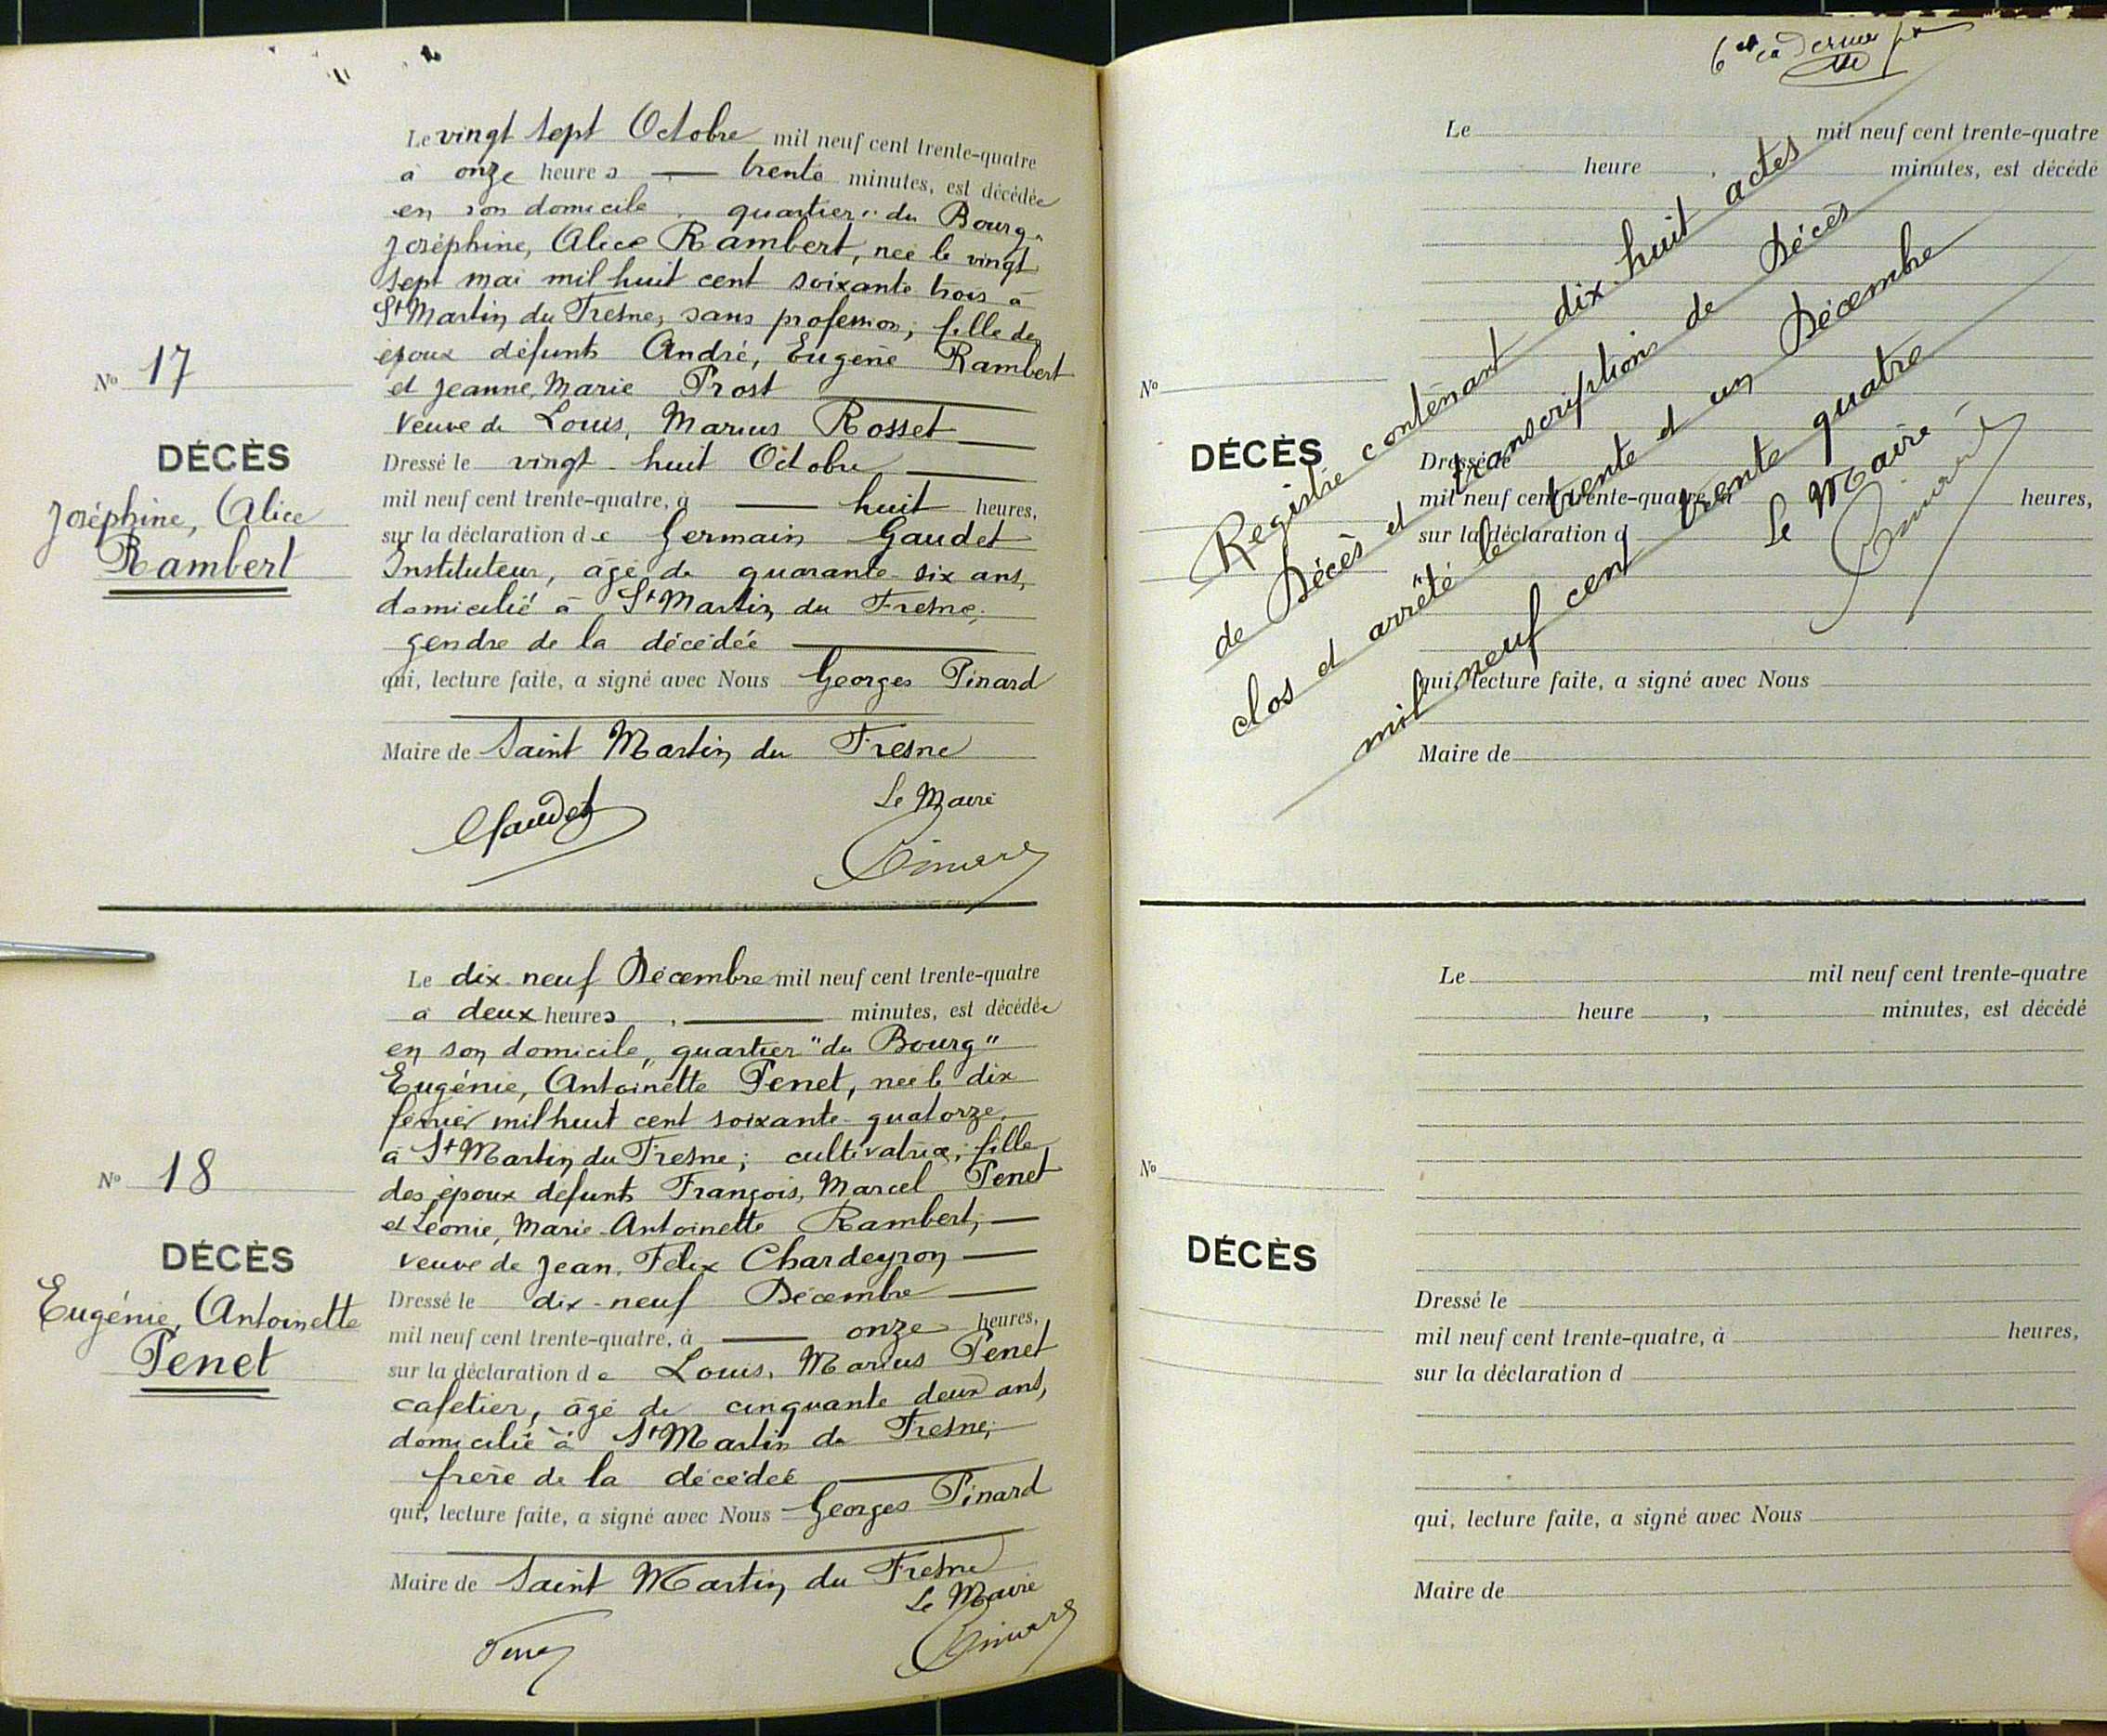 Le vingt sept Octobre mil neuf cent trente-quatre
à onze heures — trente minutes, est décédée
en son domicile, quartier "du Bourg"
Joséphine, Alice Rambert, née le vingt
sept mai mil huit cent soixante trois à
St Martin du Fresne, sans profession; fille des
époux défunts André, Eugène Rambert
et Jeanne, Marie Prost
Veuve de Louis, Marius Rosset
Nº 17
DÉCÈS
Joséphine, Alice
Rambert
Dressé le vingt-huit Octobre
mil neuf cent trente-quatre, à — huit heures,
sur la déclaration de Germain Gaudet
Instituteur, âgé de quarante-six ans,
domicilié à St Martin du Fresne;
gendre de la décédée
qui, lecture faite, a signé avec Nous Georges Pinard
Maire de Saint Martin du Fresne
Gaudet
Le Maire
Pinard
Le dix-neuf Décembre mil neuf cent trente-quatre
à deux heures, — minutes, est décédée
en son domicile, quartier "du Bourg"
Eugénie, Antoinette Penet, née le dix
février mil huit cent soixante-quatorze
à St Martin du Fresne; cultivatrice; fille
des époux défunts François, Marcel Penet
et Léonie, Marie-Antoinette Rambert, —
veuve de Jean, Félix Chardeyron —
Nº 18
DÉCÈS
Eugénie, Antoinette
Penet
Dressé le dix-neuf Décembre —
mil neuf cent trente-quatre, à — onze heures,
sur la déclaration de Louis, Marius Penet
cafetier, âgé de cinquante deux ans,
domicilié à St Martin du Fresne;
frère de la décédée
qui, lecture faite, a signé avec Nous Georges Pinard
Maire de Saint Martin du Fresne
Le Maire
Penet
Pinard
6
Le mil neuf cent trente-quatre
heure , minutes, est décédé
Nº
DÉCÈS
Dressé le
mil neuf cent trente-quatre, à heures,
sur la déclaration d
qui, lecture faite, a signé avec Nous
Maire de
Registre contenant dix-huit actes
de Décès et transcriptions de Décès
clos et arrêté le trente et un Décembre
mil neuf cent trente quatre
Le Maire
Pinard
Le mil neuf cent trente-quatre
heure , minutes, est décédé
Nº
DÉCÈS
Dressé le
mil neuf cent trente-quatre, à heures,
sur la déclaration d
qui, lecture faite, a signé avec Nous
Maire de